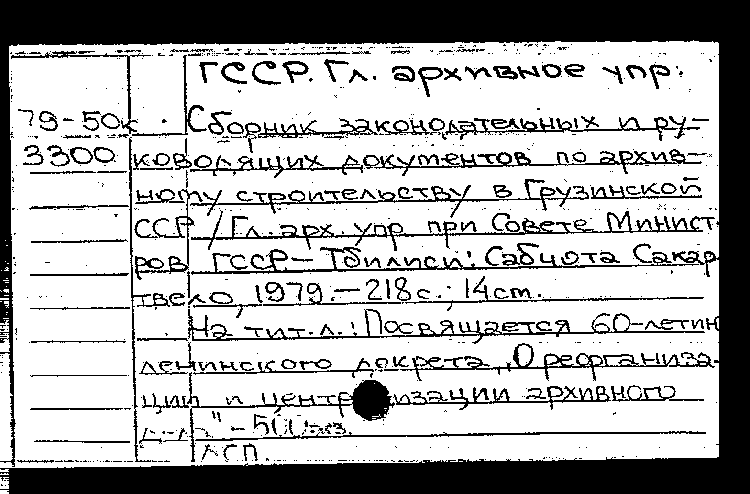 ГССР. Гл. архивное упр.
79-50к Сборник законодательных и ру-
3300 ководящих документов по архив-
ному строительству в Грузинской
ССР / Гл. арх. упр. при Совете Минист-
ров ГССР.- Тбилиси: Сабчота Сакар-
твело, 1979.- 218 с.; 14 см.
На тит. л.: Посвящается 60-летию
ленинского декрета „О реорганиза-
ции и архивного
дела" - 500